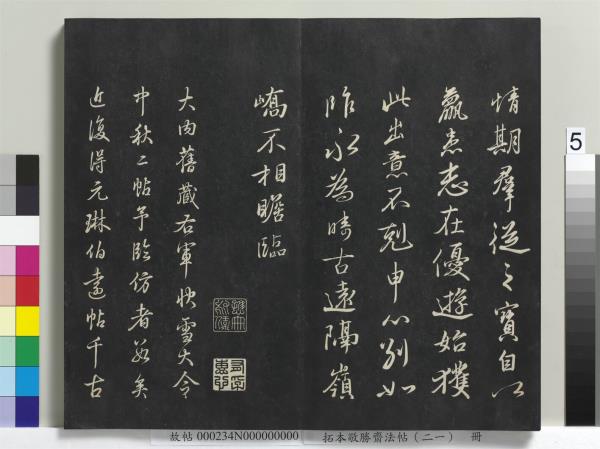 情期群從之寶自以
羸患志在優遊始獲
此出意不剋申分別如
昨永為疇古遠隔嶺
嶠不相瞻臨
大內舊藏右軍快雪大令
中秋二帖予臨仿者數矣
近復得元琳伯遠帖千古
5
故帖 000234N000000000
拓本敬勝齋法帖(二一) 冊